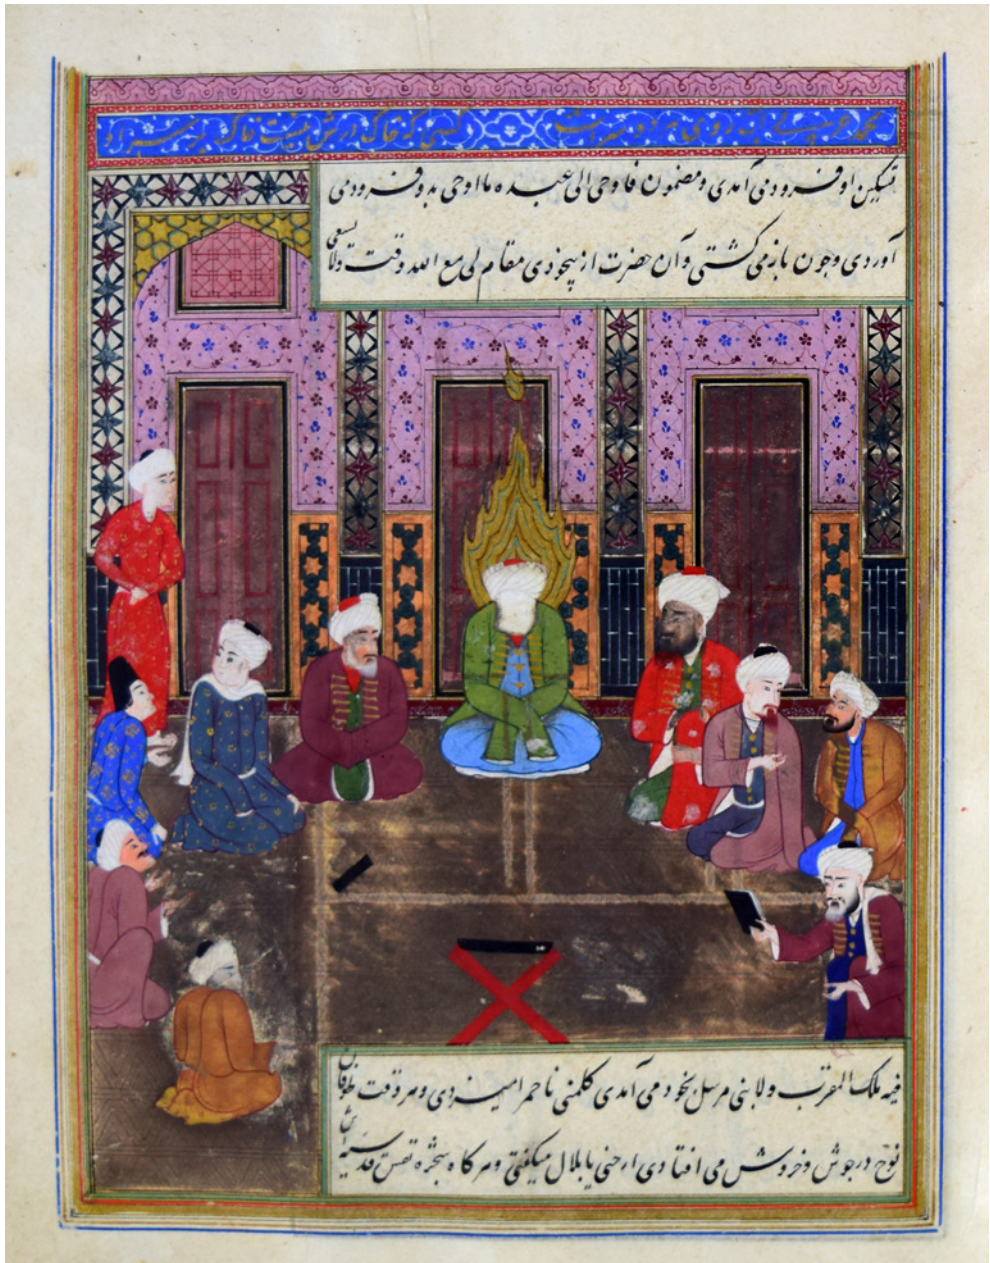 محمد عربی کابروی هر دو سراست کسی که خاک درش نیست خاک بر سر او
تسکین او فرودمی آمدی ومضمون فاوحی الی عبده ما اوحی بدو فرودمی
آوردی وچون بازمی کشتی وآن حضرت از بیخودی مقام لی مع الله وقت لا یسعنی
فیه ملک المقرب ولا بنی مرسل بخود می آمدی کلمنی یا حمرا میزدی وهر وقت طوفان
نوح درجوش وخروش می افتادی ارحنی یا بلال میکفتی وهرکاه